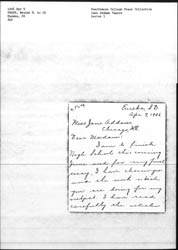 1906 Apr 9
Eureka, SD
Swarthmore College Peace Collection
Jane Addams Papers
Series 1
Eureka, S.D.
Apr. 9, 1906
Miss Jane Addams
Chicago, Ill.
Dear Madam:
I am to finish
High School this coming
June and for my final
essay, I have chosen you
and the work which
you are doing for my
subject. I have read
carefully the articles